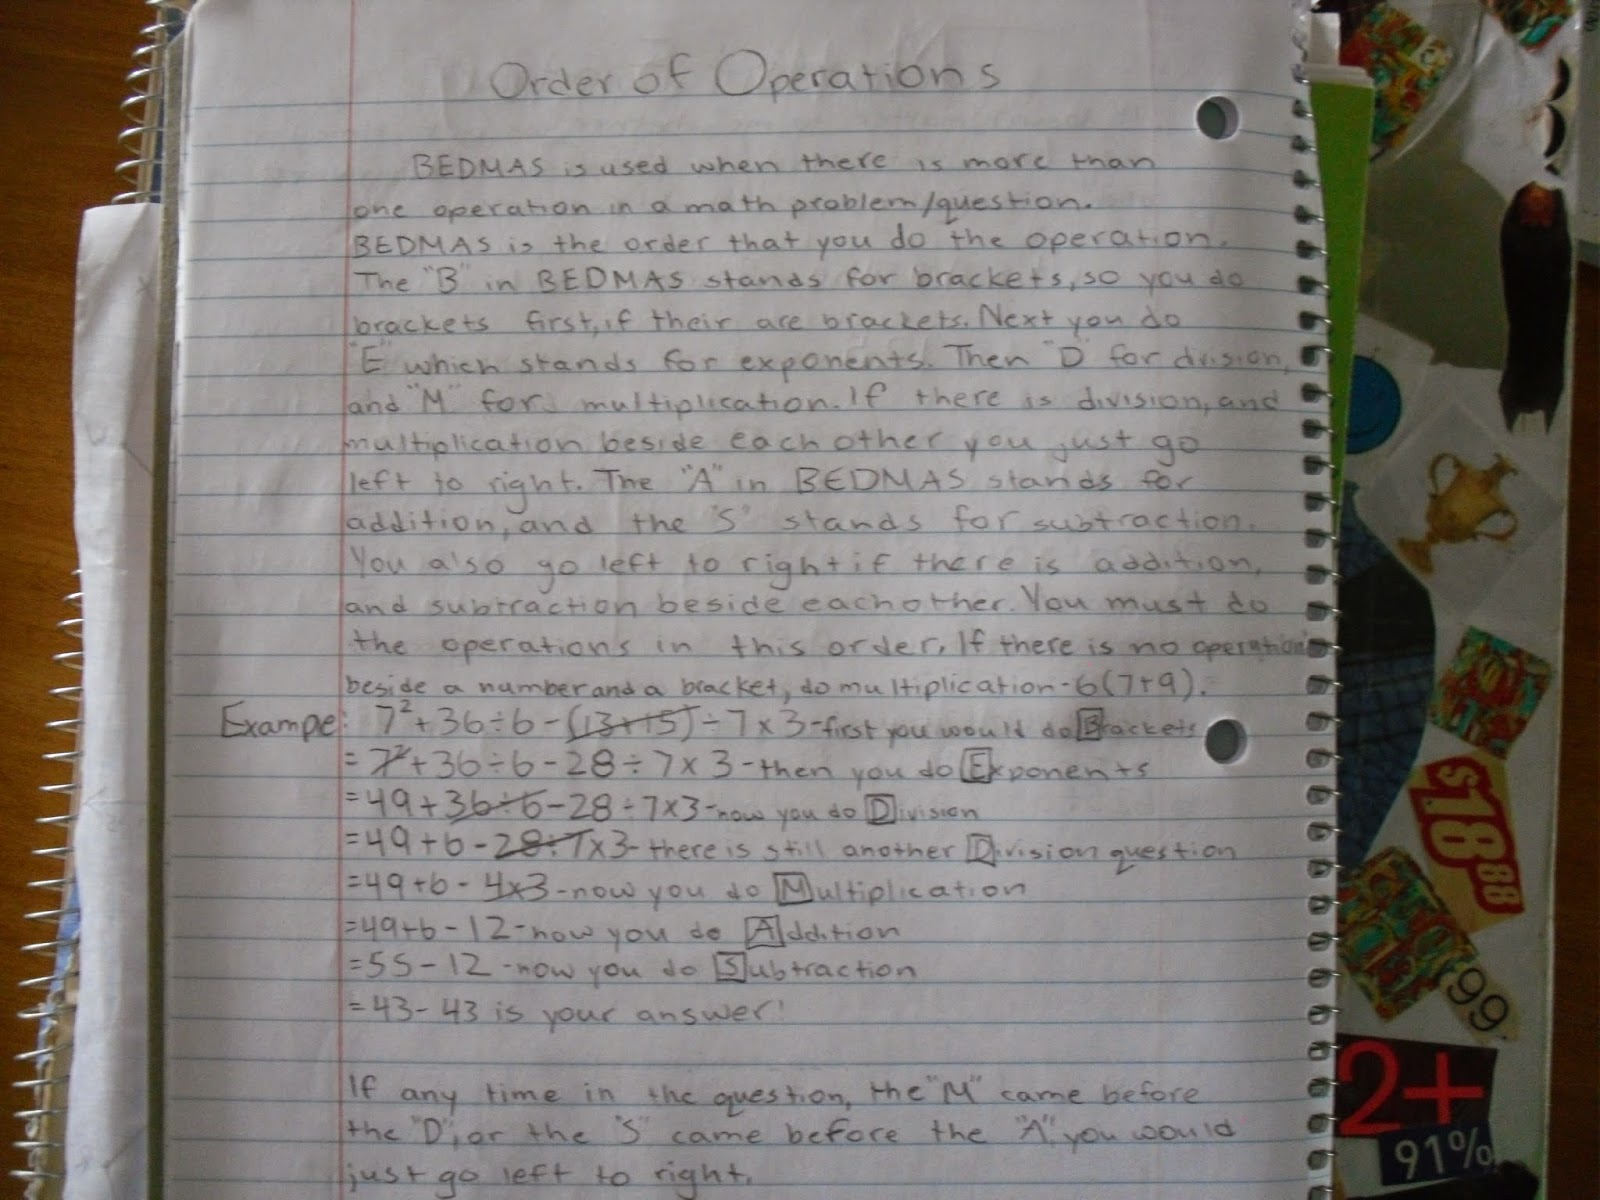 Order of Operations
BEDMAS is used when there is more than
one operation in a math problem/question.
BEDMAS is the order that you do the operation.
The "B" in BEDMAS stands for brackets, so you do
brackets first, if their are brackets. Next you do
"E" which stands for exponents. Then "D" for division,
and "M" for multiplication. If there is division, and
multiplication beside each other you just go
left to right. The "A" in BEDMAS stands for
addition, and the "S" stands for subtraction.
You also go left to right if there is addition,
and subtraction beside each other. You must do
the operations in this order. If there is no operation
beside a number and a bracket, do multiplication - 6(7+9).
Exampe: 7²+36÷6-(13+15)÷7×3-first you would do Brackets
=7²+36÷6-28÷7×3-then you do Exponents
=49+36÷6-28÷7×3-now you do Division
=49+6-28÷7×3-there is still another Division question
=49+6-4×3-now you do Multiplication
=49+6-12-now you do Addition
=55-12-now you do Subtraction
=43-43 is your answer!
If any time in the question, the "M" came before
the "D", or the "S" came before the "A", you would
just go left to right.
$18.88
99
2+
91%